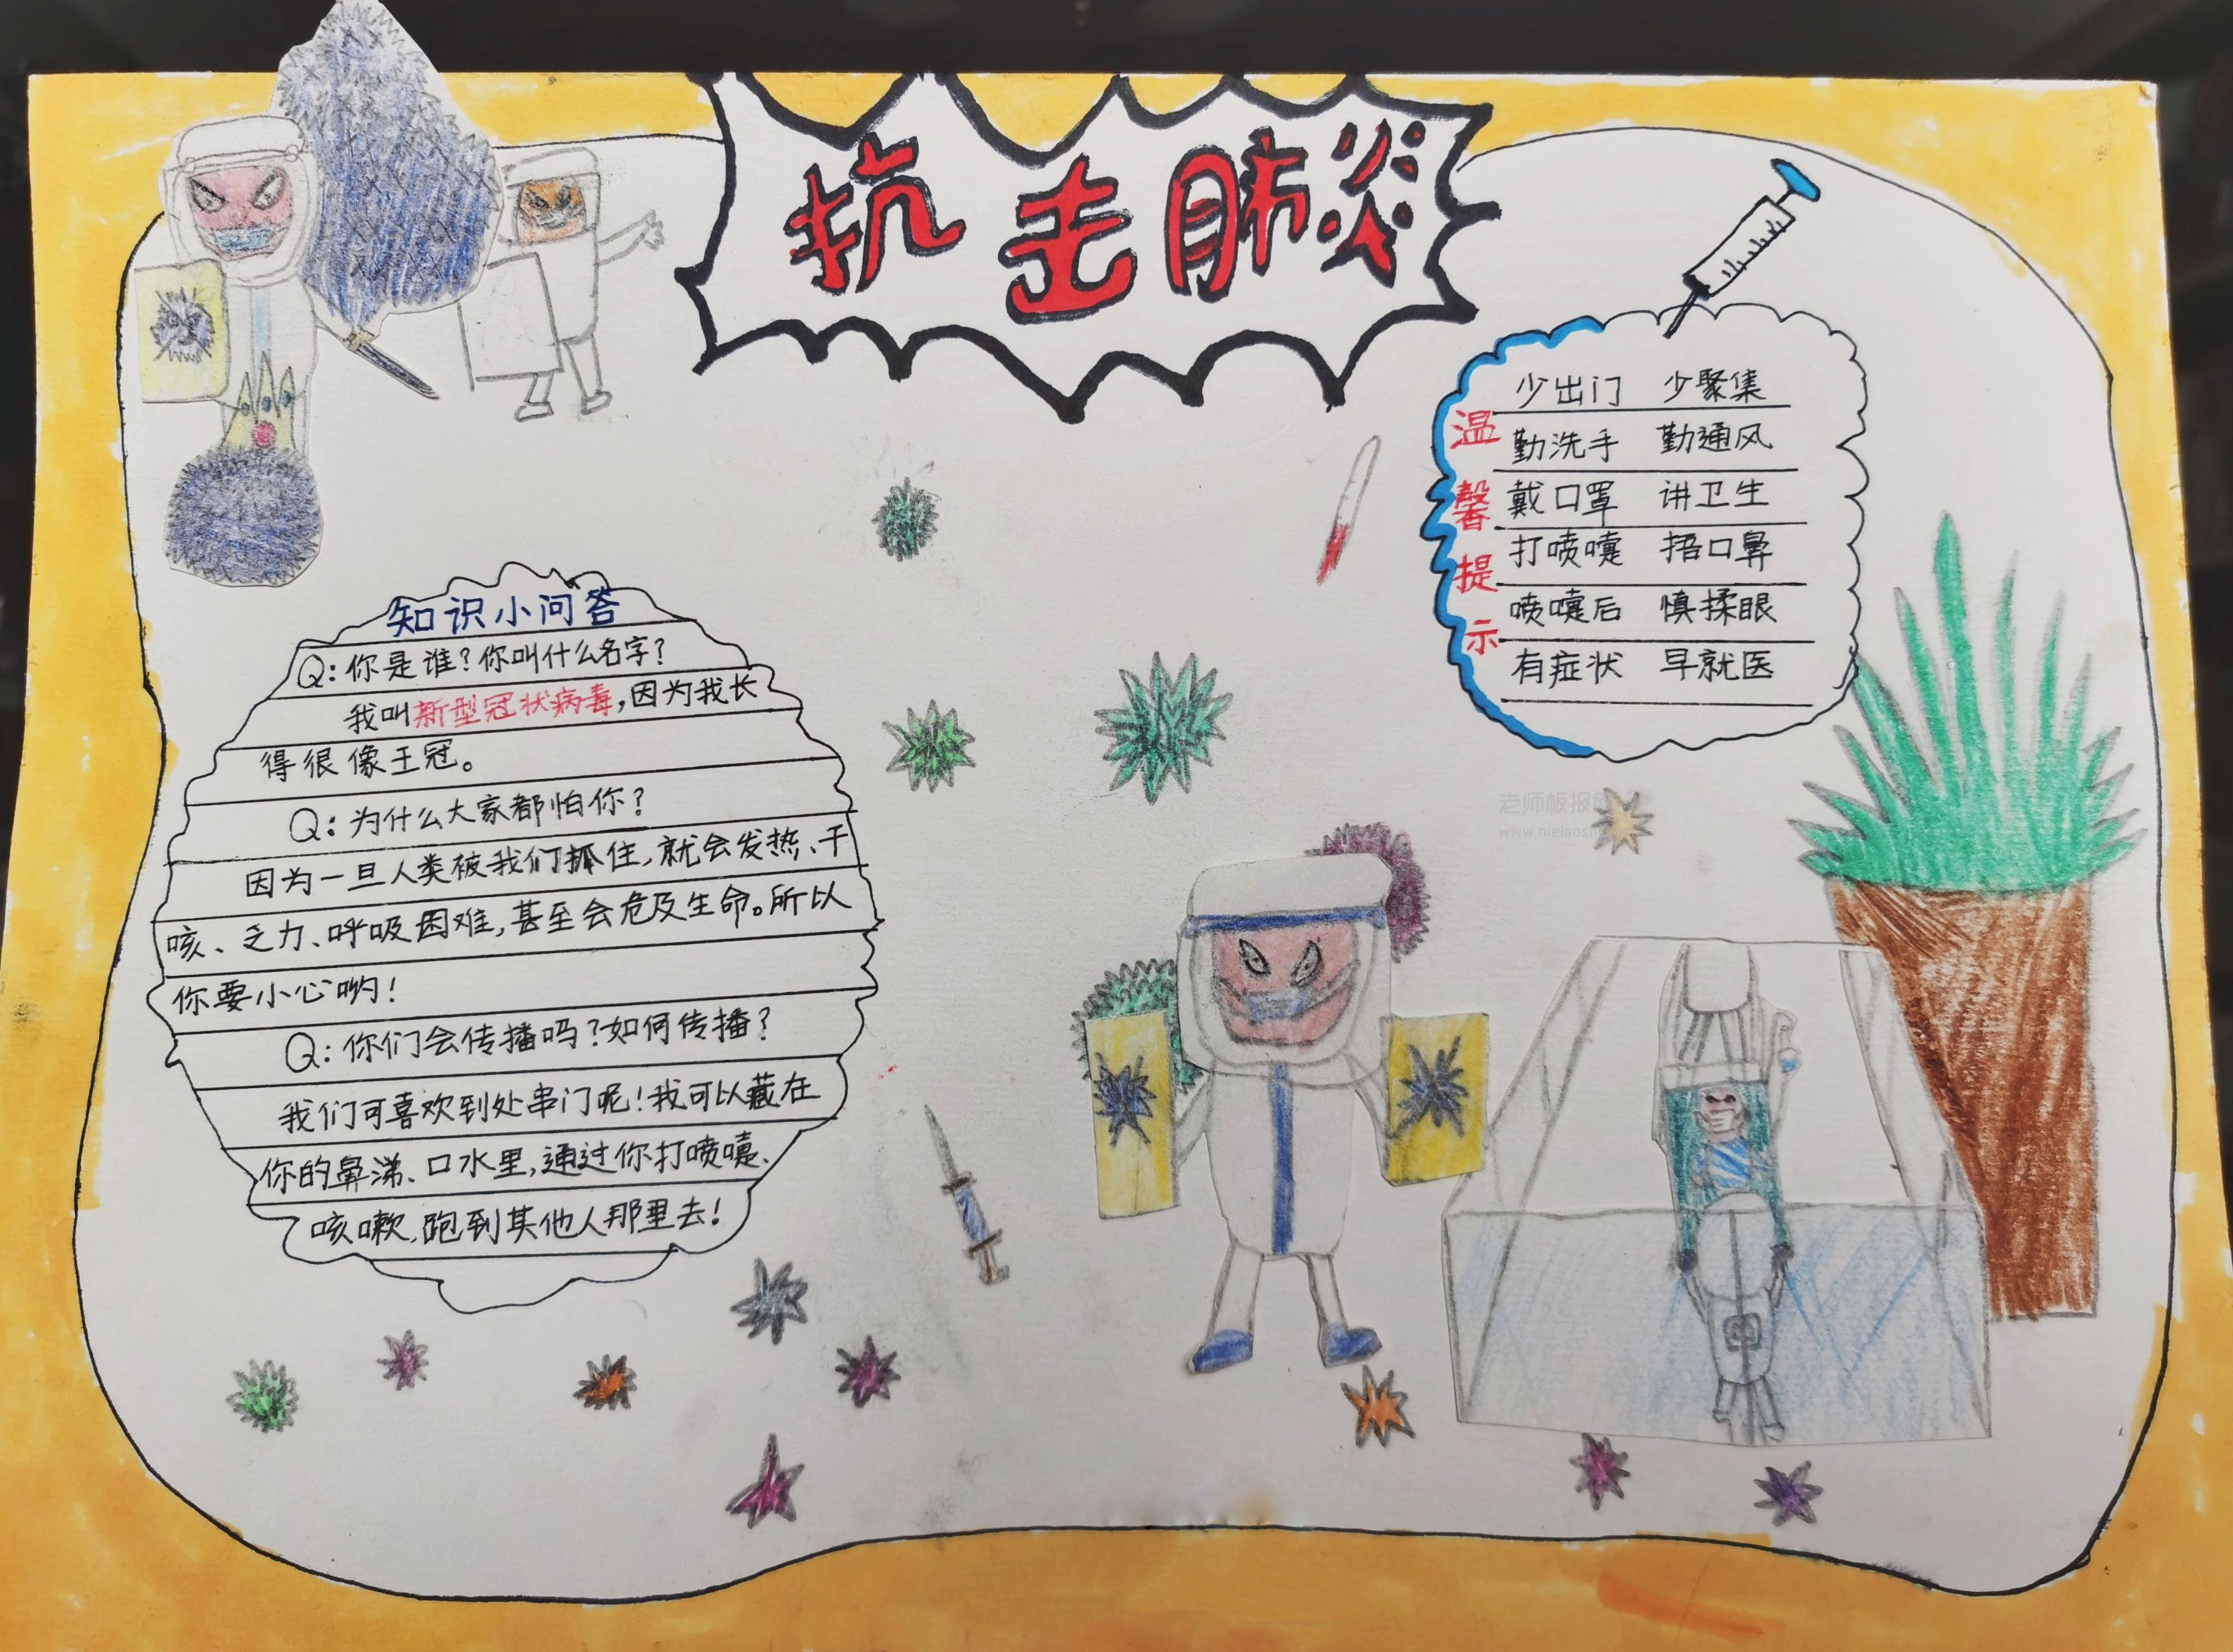 抗击肺炎
知识小问答
Q:你是谁?你叫什么名字?
我叫新型冠状病毒,因为我长
得很像王冠。
Q:为什么大家都怕你?
因为一旦人类被我们抓住,就会发热、干
咳、乏力、呼吸困难,甚至会危及生命。所以
你要小心哟!
Q:你们会传播吗?如何传播?
我们可喜欢到处串门呢!我可以藏在
你的鼻涕、口水里,通过你打喷嚏、
咳嗽,跑到其他人那里去!
温馨提示
少出门 少聚集
勤洗手 勤通风
戴口罩 讲卫生
打喷嚏 捂口鼻
喷嚏后 慎揉眼
有症状 早就医
老师板报
www.nielaosh